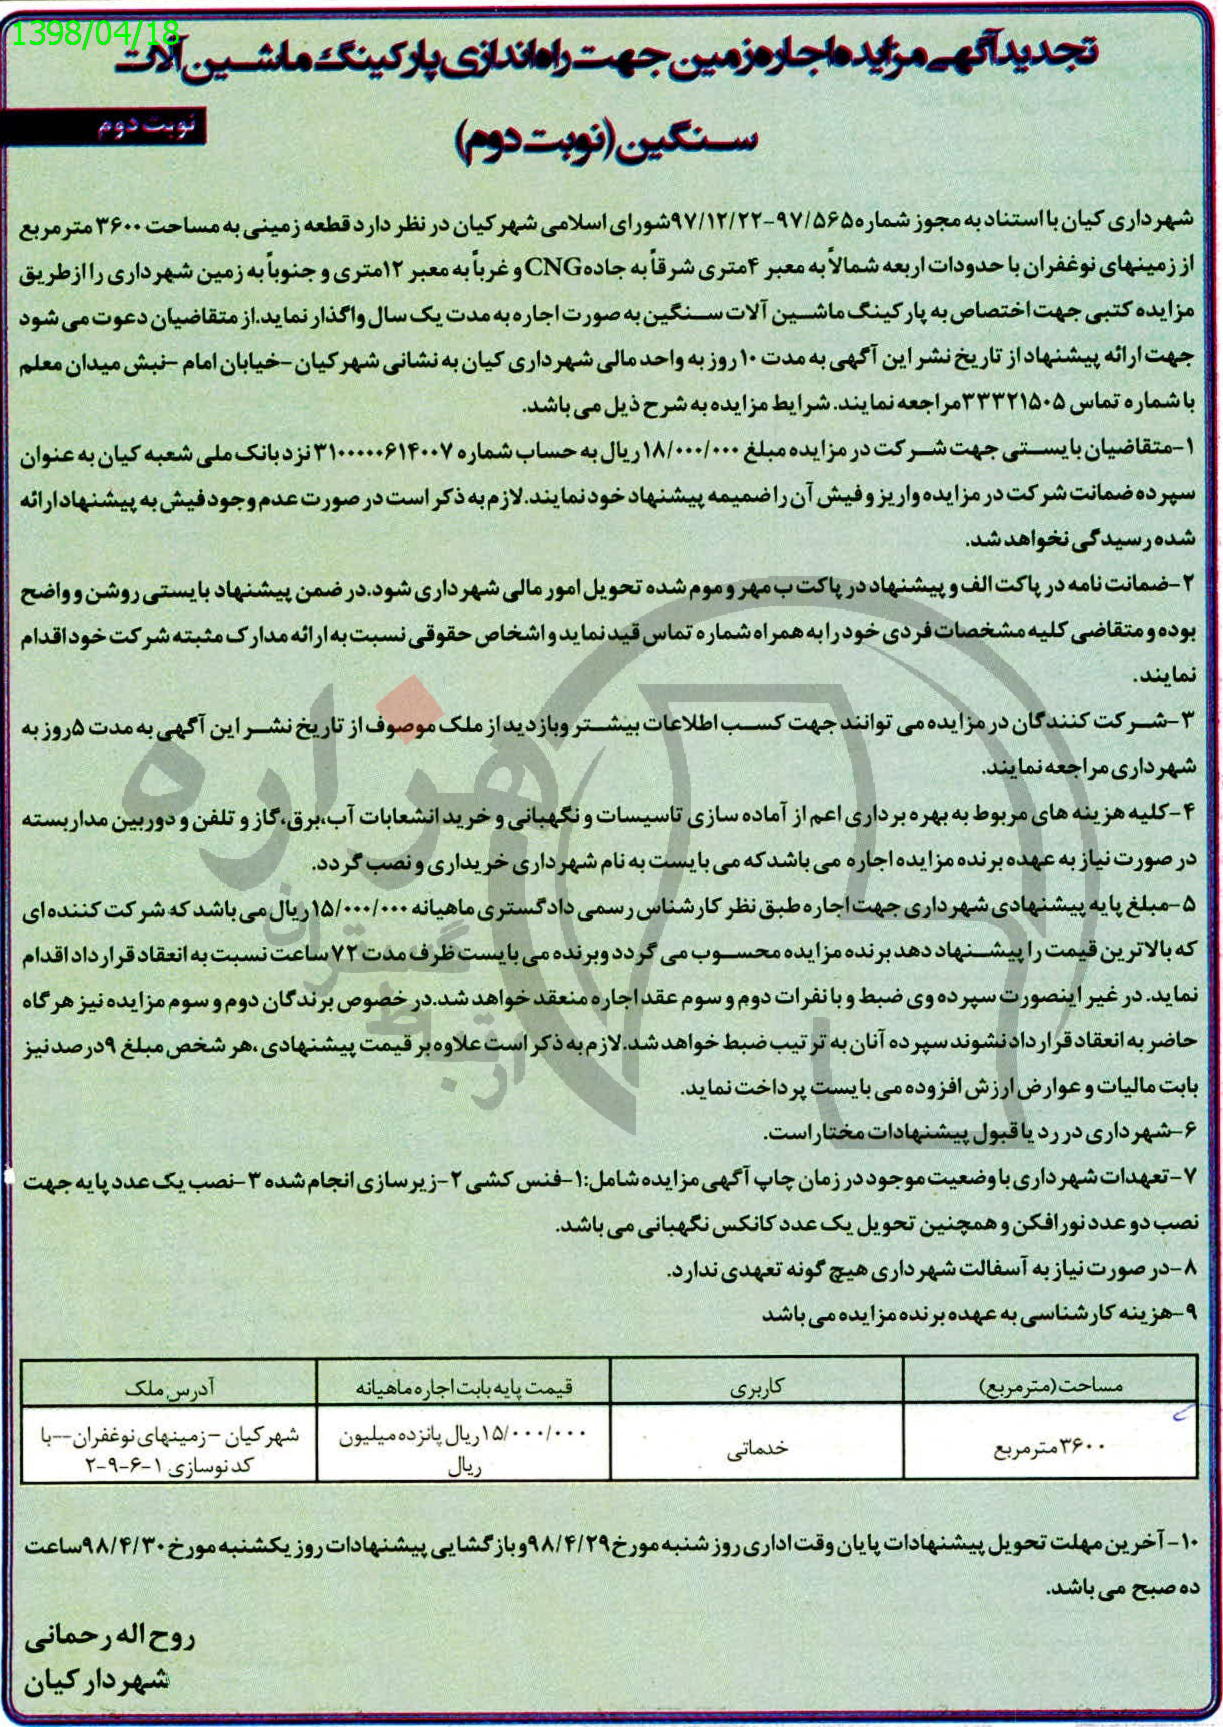 1398/04/18
تجدید آگهی مزایده اجاره زمین جهت راه اندازی پارکینگ ماشین آلات
سنگین (نوبت دوم)
نوبت دوم
شهرداری کیان با استناد به مجوز شماره ۹۷/۵۶۵-۹۷/۱۲/۲۲ شورای اسلامی شهر کیان در نظر دارد قطعه زمینی به مساحت ۳۶۰۰ متر مربع
از زمینهای نوغفران با حدودات اربعه شمالاً به معبر ۴ متری شرقاً به جاده CNG و غرباً به معبر ۱۲ متری و جنوباً به زمین شهرداری را از طریق
مزایده کتبی جهت اختصاص به پارکینگ ماشین آلات سنگین به صورت اجاره به مدت یک سال واگذار نماید. از متقاضیان دعوت می شود
جهت ارائه پیشنهاد از تاریخ نشر این آگهی به مدت ۱۰ روز به واحد مالی شهرداری کیان به نشانی شهر کیان -خیابان امام -نبش میدان معلم
با شماره تماس ۳۳۳۲۱۵۰۵ مراجعه نمایند. شرایط مزایده به شرح ذیل می باشد.
۱-متقاضیان بایستی جهت شرکت در مزایده مبلغ ۱۸/۰۰۰/۰۰۰ ریال به حساب شماره ۳۱۰۰۰۰۰۶۱۴۰۰۷ نزد بانک ملی شعبه کیان به عنوان
سپرده ضمانت شرکت در مزایده واریز و فیش آن را ضمیمه پیشنهاد خود نمایند. لازم به ذکر است در صورت عدم وجود فیش به پیشنهاد ارائه
شده رسیدگی نخواهد شد.
۲-ضمانت نامه در پاکت الف و پیشنهاد در پاکت ب مهر و موم شده تحویل امور مالی شهرداری شود. در ضمن پیشنهاد بایستی روشن و واضح
بوده و متقاضی کلیه مشخصات فردی خود را به همراه شماره تماس قید نماید و اشخاص حقوقی نسبت به ارائه مدارک مثبته شرکت خود اقدام
نمایند.
۳-شرکت کنندگان در مزایده می توانند جهت کسب اطلاعات بیشتر و بازدید از ملک موصوف از تاریخ نشر این آگهی به مدت ۵ روز به
شهرداری مراجعه نمایند.
۴-کلیه هزینه های مربوط به بهره برداری اعم از آماده سازی تاسیسات و نگهبانی و خرید انشعابات آب، برق، گاز و تلفن و دوربین مداربسته
در صورت نیاز به عهده برنده مزایده اجاره می باشد که می بایست به نام شهرداری خریداری و نصب گردد.
۵-مبلغ پایه پیشنهادی شهرداری جهت اجاره طبق نظر کارشناس رسمی دادگستری ماهیانه ۱۵/۰۰۰/۰۰۰ ریال می باشد که شرکت کننده ای
که بالاترین قیمت را پیشنهاد دهد برنده مزایده محسوب می گردد و برنده می بایست ظرف مدت ۷۲ ساعت نسبت به انعقاد قرارداد اقدام
نماید. در غیر اینصورت سپرده وی ضبط و با نفرات دوم و سوم عقد اجاره منعقد خواهد شد. در خصوص برندگان دوم و سوم مزایده نیز هرگاه
حاضر به انعقاد قرارداد نشوند سپرده آنان به ترتیب ضبط خواهد شد. لازم به ذکر است علاوه بر قیمت پیشنهادی، هر شخص مبلغ ۹ درصد نیز
بابت مالیات و عوارض ارزش افزوده می بایست پرداخت نماید.
۶-شهرداری در رد یا قبول پیشنهادات مختار است.
۷-تعهدات شهرداری با وضعیت موجود در زمان چاپ آگهی مزایده شامل: ۱-فنس کشی ۲-زیرسازی انجام شده ۳-نصب یک عدد پایه جهت
نصب دو عدد نورافکن و همچنین تحویل یک عدد کانکس نگهبانی می باشد.
۸-در صورت نیاز به آسفالت شهرداری هیچ گونه تعهدی ندارد.
۹-هزینه کارشناسی به عهده برنده مزایده می باشد
مساحت (متر مربع) کاربری قیمت پایه بابت اجاره ماهیانه آدرس ملک
۳۶۰۰ متر مربع خدماتی ۱۵/۰۰۰/۰۰۰ ریال پانزده میلیون ریال شهر کیان -زمینهای نوغفران--با کد نوسازی ۱-۶-۹-۲
۱۰-آخرین مهلت تحویل پیشنهادات پایان وقت اداری روز شنبه مورخ ۹۸/۴/۲۹ و بازگشایی پیشنهادات روز یکشنبه مورخ ۹۸/۴/۳۰ ساعت
ده صبح می باشد.
روح اله رحمانی
شهردار کیان
هزاره